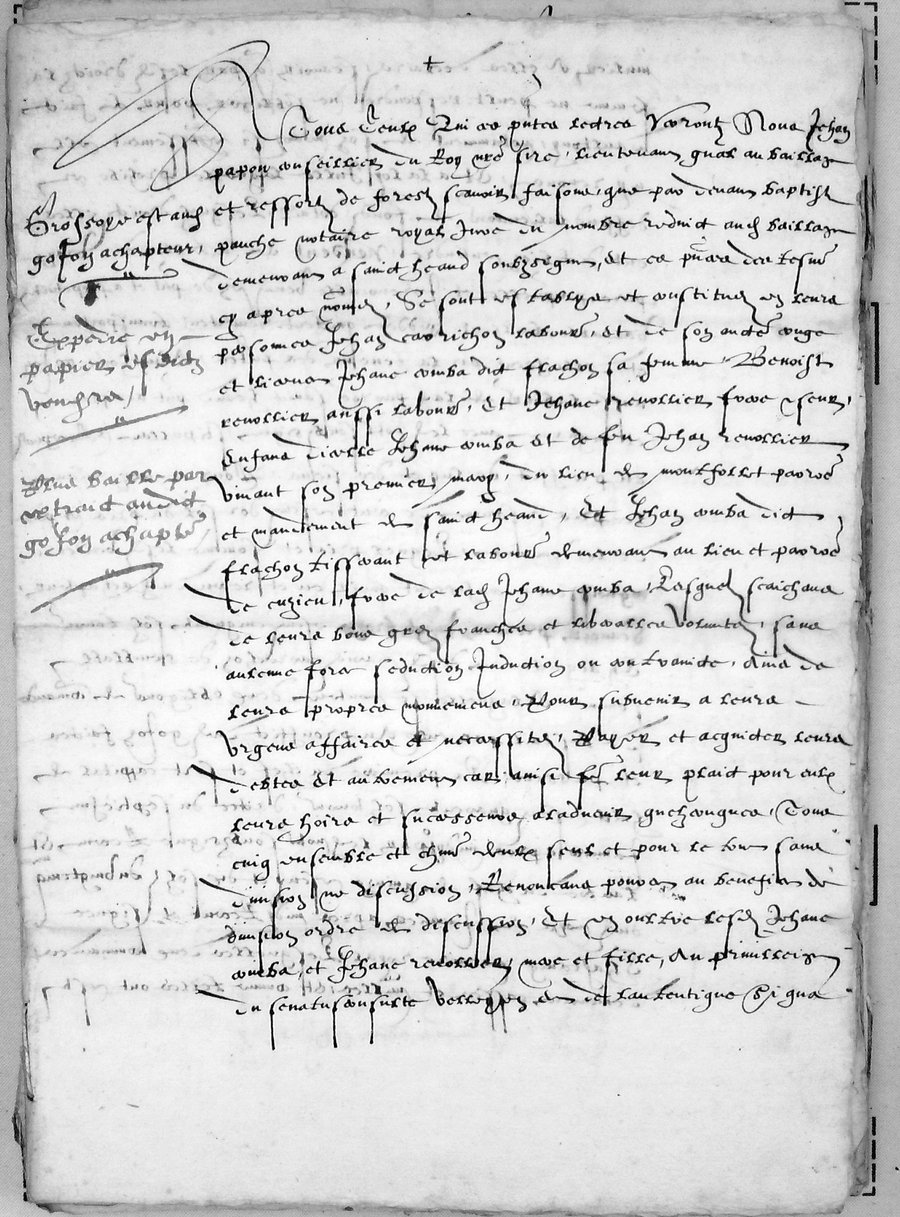 A Tous Ceulx Qui ces pntes lectres verront Nous Jehan
papon conseillier du Roy nre sire, lieutenant gnal au bailliage
et ressort de forestz scavoir faisons, que par devant baptiste
pauche notaire royal Juré du nombre reduict aud bailliage
demeurant a sainct heand soubzsigné, et es pnces des tesmoings
cy apres nomes, Se sont establys et constitués en leurs
personnes Jehan laboure, et de son aucte conge
et licence Jehane comba dict flachon sa femme, Benoist
revollier aussi laboure, et Jehane revollier frere et seur,
Enfans dicelle Jehane comba et de feu Jehan revollier
vivant son premier mary, du lieu de montfollet parroe
et mandement de sainct heand, Et Jehan comba dict
flachon tisserant et laboure demeurant au lieu et parroe
de cuzieu, frere de lad Jehane comba, Lesquelz scaichans
de leurs bons grez franches et liberalles voluntez, sans
aulcune force seduction Induction ou contraincte, Ains de
leurs propres mouvemens, Pour subvenir a leurs
Urgens affaires et necessitez, Payer et acquicter leurs
debtes Et aultrement car ainsi leur plaict pour eulx
leurs hoirs et successeurs aladvenir quelconques, Tous
cinq ensemble et chune deulx seul et pour le tout sans
division ne discussion, Renonceans au benefice de
division ordre de discussion, Et en oultre lesd Jehane
comba, et Jehane revollier, mere et fille, Au privilleige
du senatusconsulte velleyen et de lautentique Si qua
Grossoye est aud
gofon achapteur,
Expedie en
papier esdictz
vendeurs,
Plus baille par
extraict audict
gofon achapte